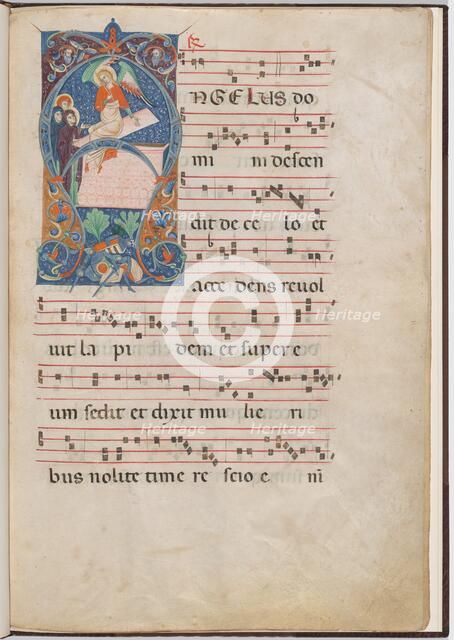 R
ANGELUS DO
mi ni descen
dit de ce lo et
acce dens revol
vit la pi dem et supere
um sedit et dixit mu lie ri
bus nolite time re scio e ni
Heritage
Heritage
Heritage
Heritage
Heritage
Heritage